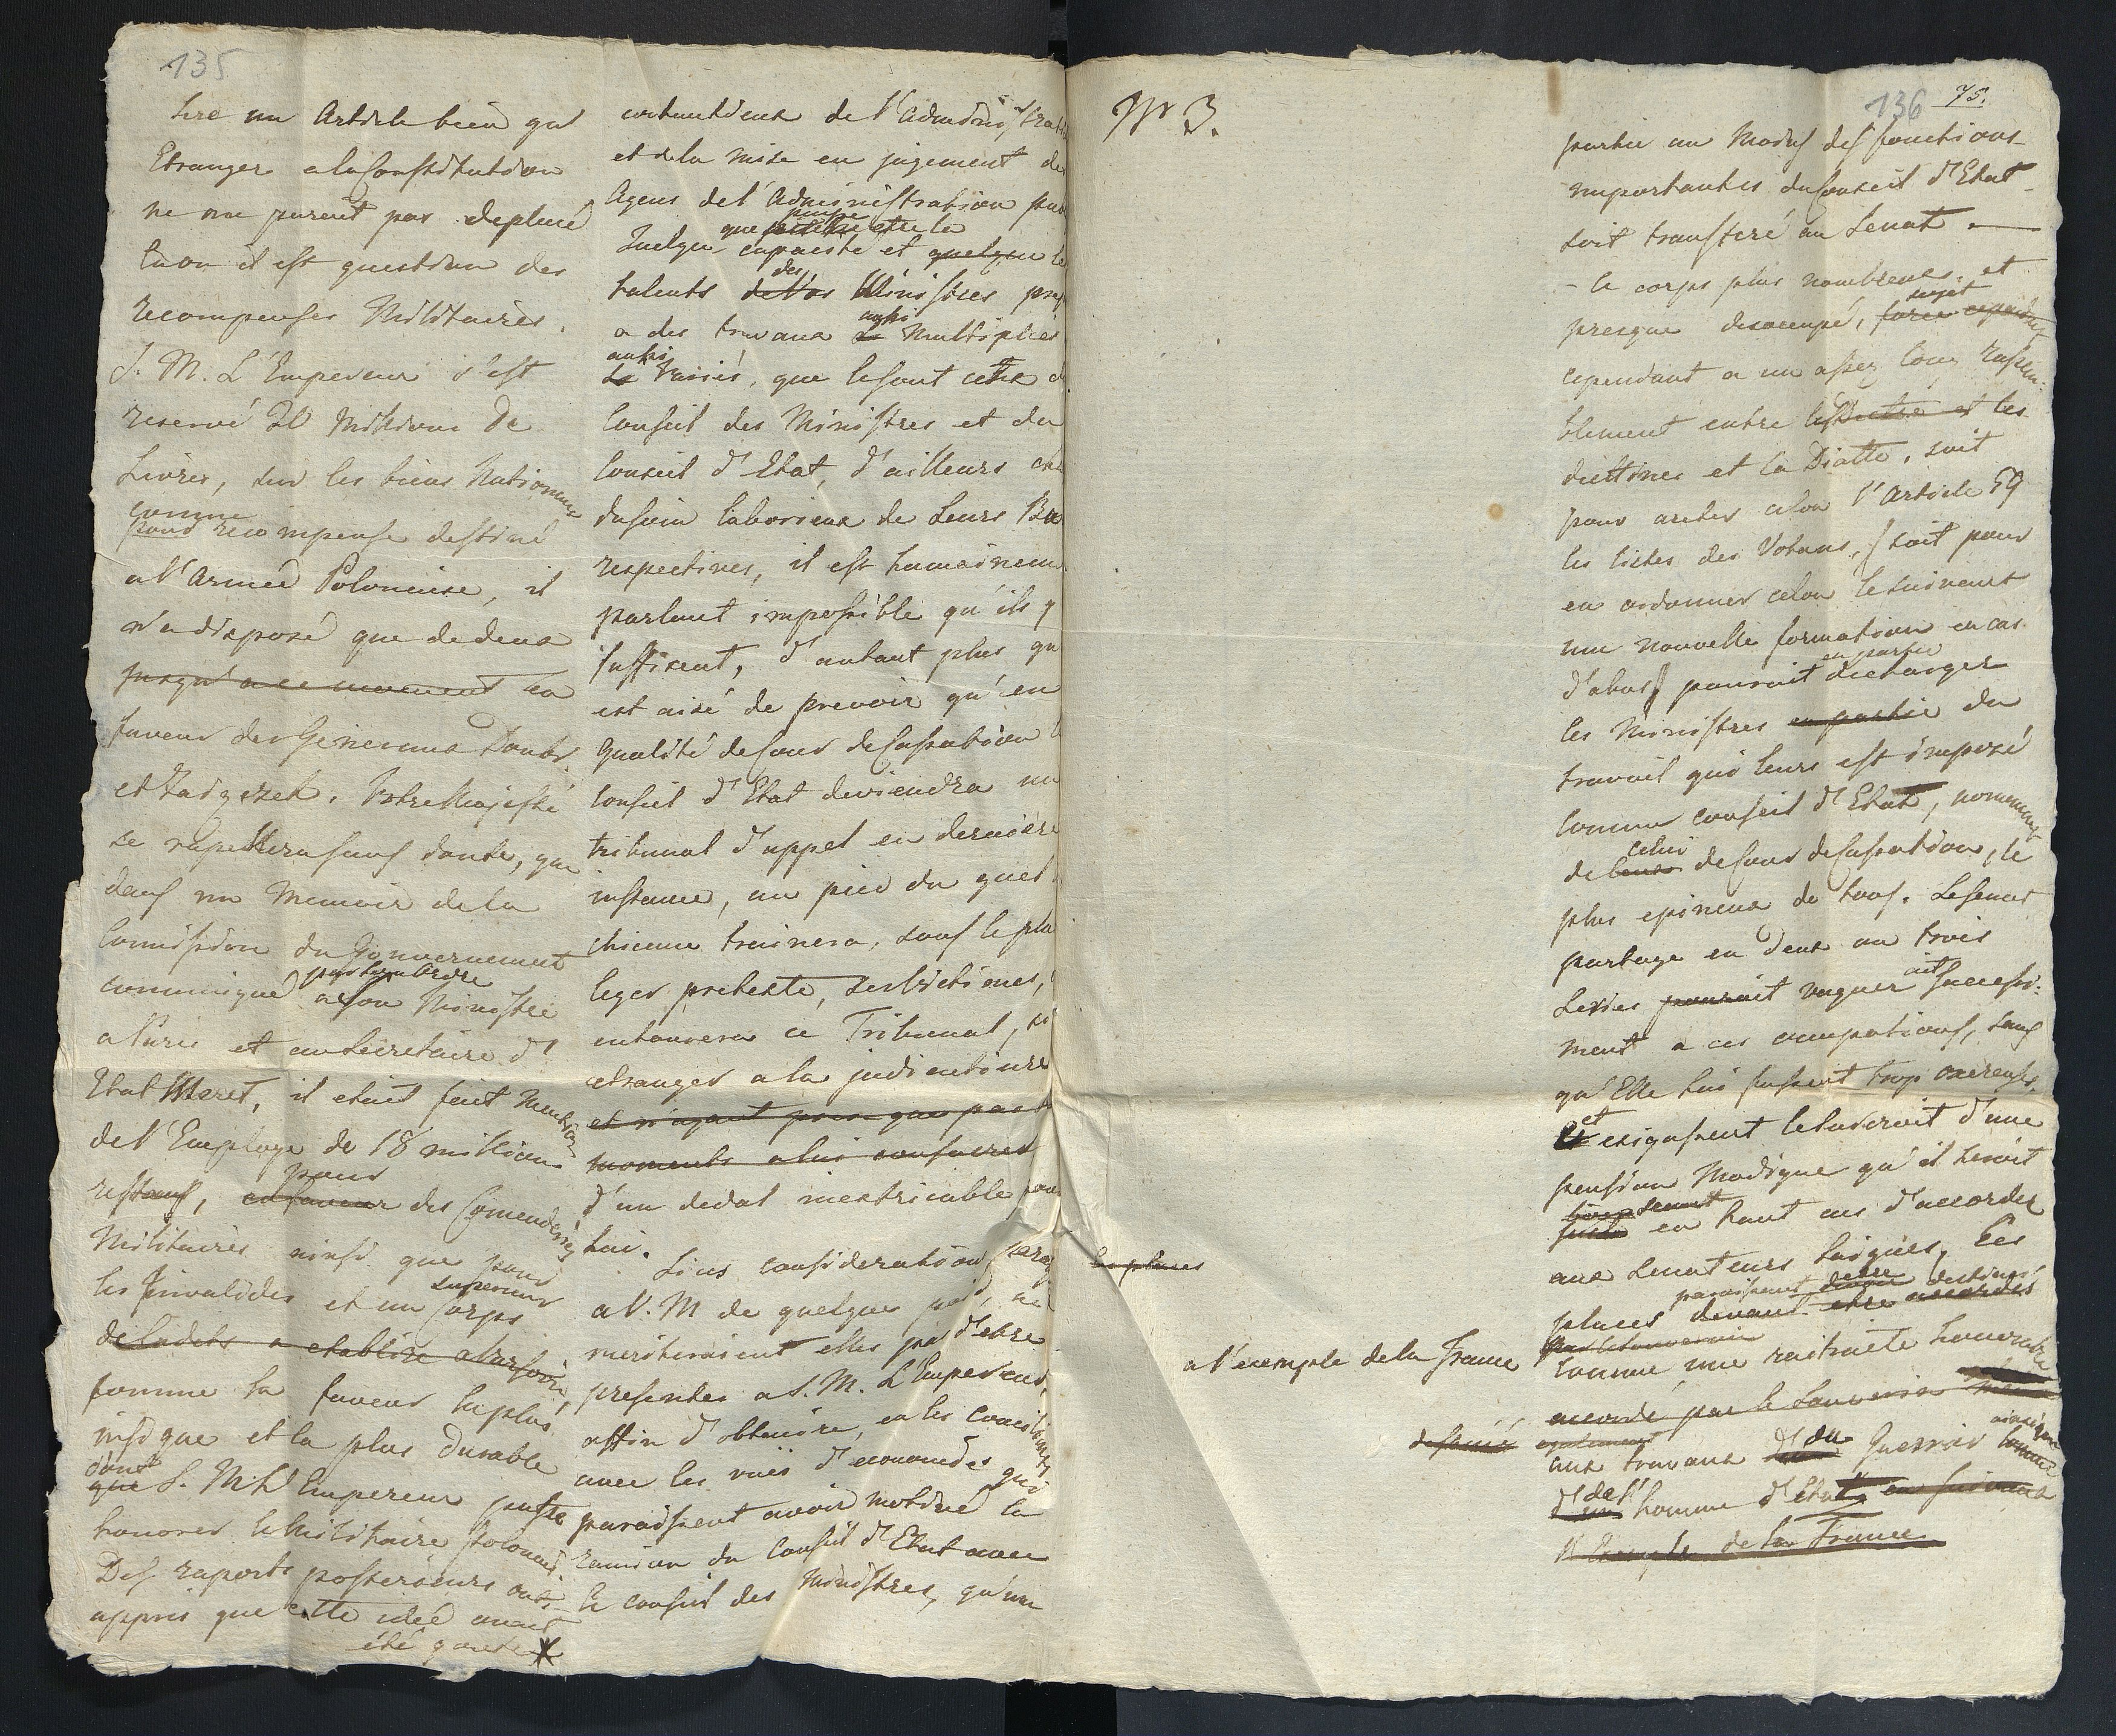 135
Etranger a la Constitution
ne me parait pas deplacé
la ou il est question des
recompenses Militaires.
S. M. L'Empereur s'est
reservé 20 Millions de
Livres, sur les biens Nationaux
comme
recompense destiné
a l'Armée Polonaise, il
n'a disposé que de deux
jusqu'a ce moment en
faveur des Generaux Dombr.
et Zaigczek. Votre Majesté
se rapellera sans doute, que
dans un Memoir de la
Comission du Gouvernement
par son Ordre
communiqué a son Ministre
a Paris et au Secretaire d'
Etat Maret, il etait fait Mention
de l'Employe de 18 millions
pour
restans, en faveur des Comenderies
Militaires ainsi que pour
les Invalides et un Corps
de Cadets a etablire a Varsovie,
comme la faveur la plus
insigne et la plus durable
dont
que S. M. L'Empereur puisse
honorer le Militaire Polonais
Des raports posterieurs ont
appris que cette idée avait
été goutée *
contentieux de l'Administrat
et de la mise en jugement de
Agens de l'Administration pu
puisse
que etre la
Quelque capacité et quelque le
des
talents de Vos Ministres
aussi
a des travaux Multiplies
aussi
variés, que le sont ceux d
Conseil des Ministres et du
Conseil d'Etat, d'ailleurs
du soin laborieux de leurs Bu
respectives, il est humainem
parlant impossible qu'ils y
suffisent, d'autant plus qu
est aisé de prevoir qu'en
qualité de Cour de Cassation l
Conseil d'Etat deviendra un
tribunal d'appel en derniere
instance, au pied du quel
chicane trainera, sous le plu
leger pretexte, ses victimes,
entourera ce Tribunal,
etranger a la judicature
et n'ayant que
moments a lui consacrer
d'un dedal inextricable pour
lui.
Si ces considerations
a V. M de quelque poid, ne
meriteraient elles pas d'etre
presentés a S. M. L'Empereur,
affin d'obtenire, en les conciliants
avec les vues d'economies qui
paraissent avoir motivé la
reunion du Conseil d'Etat avec
le conseil des Ministres, qu'une
Nr 3.
136 75.
partie au Moins des fonctions
importantes du Conseil d'Etat
soit transferé au Senat.
- Ce corps plus nombreux et
sujet
presque desoccupé,
cependant a un assez long rassem-
blement entre les et les
diettines et la Diette, soit
pour areter celon l'Article 59
les listes des Votans, soit pour
en ordonner celon le suivant
une nouvelle formation en cas
en partie
d'abus pourait decharger
les Ministres en partie du
travail qui leurs est imposé
comme conseil d'Etat,
celui
de leurs de Cour de Cassation, le
plus epineux de tous. Le Senat
partagé en deux ou trois
Series pourait vaquer successi-
ment a ces occupations, sans
qu'Elle lui fussent trop onereuses,
et
exigassent le surcroit d'une
pension Modique qu'il seroit
en tout cas d'accorder
aux Senateurs laiques, Ces
paraissent destinés
places devant etre accordés
a l'exemple de la France
comme une retraite honorable
accordé par le Souverain
egalement
aux travaux du Guerrier ainsi que
de l'
d'un homme d'état
l'Exemple de la France
les places